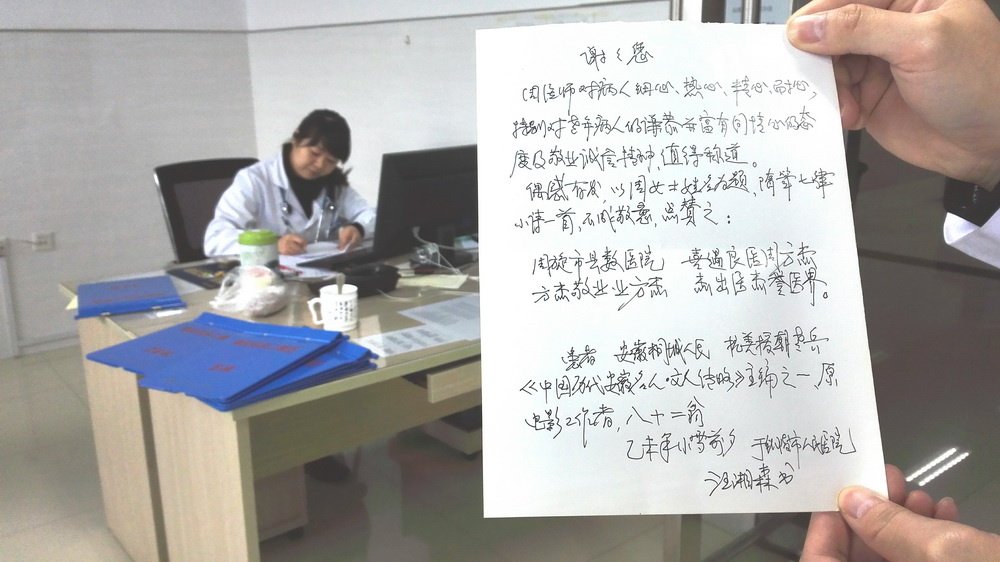 谢々您
周医师对病人细心、热心、精心、耐心,
特别对老年病人的谦恭并富有同情心的态
度及敬业诚信精神,值得称道。
偶感有发,以周女士姓名为题,随笔七律
小诗一首,不成敬意,点赞之:
周旋市县数医院 喜遇良医周方杰
方杰敬业业方杰 杰出医杰誉医界。
患者 安徽桐城人民 抗美援朝老兵
《中国历代安徽名人·文人传略》主编之一 原
电影工作者,八十二翁
乙未年小雪前夕 于 市人民医院
汪湘森书